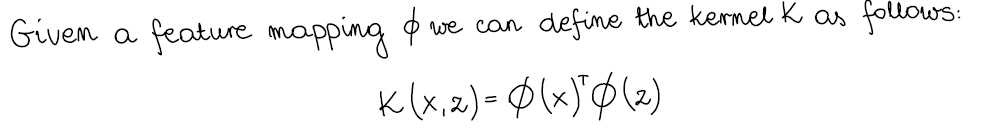 Given a feature mapping ϕ we can define the kernel K as follows:
K(x,z)=ϕ(x)ᵀϕ(z)